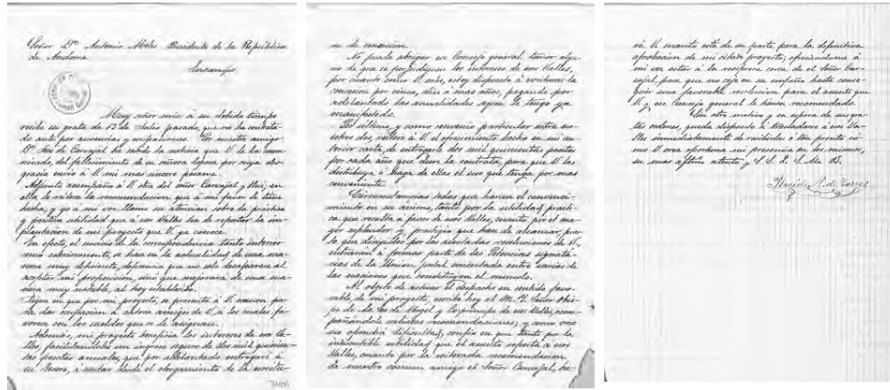 Señor Dn Antonio Males Presidente de la República
de Andorra
Encamp
Muy señor mio: á su debido tiempo
recibí su grata de 13 de Julio pasado, que no he contestado
antes por ausencias y ocupaciones. Por nuestro amigo
Dn José de Carvajal he sabido la noticia que V. le comunicaba,
del fallecimiento de su señora esposa por cuya desgracia
envio á V. mi mas sincero pésame.
Adjunta acompaño á V. otra del señor Carvajal y Hué, en
ella le reitera la recomendacion que á mi favor le tiene
hecha, y yo á mi vez llamo su atencion sobre la práctica
y positiva utilidad que á esos Valles ha de reportar la implantacion
de mi proyecto que V. ya conoce.
En efecto, el servicio de la correspondencia tanto interior
como exteriormente, se hace en la actualidad de una manera
muy deficiente, deficiencia que no solo desaparece al
aceptar mi proposicion, sino que mejorará de una manera
muy notable, al hoy establecido.
Tengan que por mi proyecto, se presenta á V. ocasion para
dar colocacion á algunos amigos de V. á los cuales favorece
con los sueldos que se le asignan.
Además, mi proyecto beneficia los intereses de esos Valles,
facilitándoles un ingreso seguro de dos mil quinientas
pesetas anuales, que por adelantado entregaré á
su Tesoro, á contar desde el otorgamiento de la escritura
de concesion.
No puede abrigar ese Consejo general temor alguno
de que se perjudiquen los intereses de esos Valles,
por cuanto como V. sabe, estoy dispuesto á continuar la
concesion por cinco, diez ó mas años, pagando por
adelantado las anualidades segun le tengo ya
manifestado.
Por último, y como convenio particular entre nosotros,
reitero á V. el ofrecimiento hecho en mi anterior
carta, de entregarle dos mil quinientas pesetas
por cada año que dure la contrata, para que V. las
distribuya ó haga de ellas el uso que tenga por mas
conveniente.
Circunstancias todas que llevan el convencimiento
en su ánimo, tanto por la utilidad práctica
que resulta á favor de esos Valles, cuanto por el mayor
esplendor y prestigio que han de alcanzar, puesto
que dirigidos por las acertadas resoluciones de V.,
entrarán á formar parte de las Potencias signatarias
de la Union postal concertada entre varias de
las naciones que constituyen el mundo.
Al objeto de activar el despacho en sentido favorable
de mi proyecto, escribo hoy al M. Y. Señor Obispo
de la Seo de Urgel y Copríncipe de esos Valles, acompañándole
valiosas recomendaciones; y como creo
no opondrá dificultad, confio en ello tanto por la
indiscutible utilidad que el asunto reporta á esos
Valles, cuanto por la reiterada recomendacion
de nuestro comun amigo el Señor Carvajal, hará
V. cuanto esté de su parte para la definitiva
aprobacion de mi citado proyecto, ofreciéndome á
mi vez estar á la recíproca cerca del Señor Carvajal,
para que no ceje en su empeño hasta conseguir
una favorable resolucion para el asunto que
V. y ese Consejo general le tienen recomendado.
Sin otro motivo y en espera de sus gratas
órdenes, queda dispuesto á trasladarse á esos Valles
inmediatamente al recibirlas ó tan pronto como
V. crea oportuna mi presencia en los mismos,
su mas affmo atento y S. S. Q. S. M. B.
de Torres